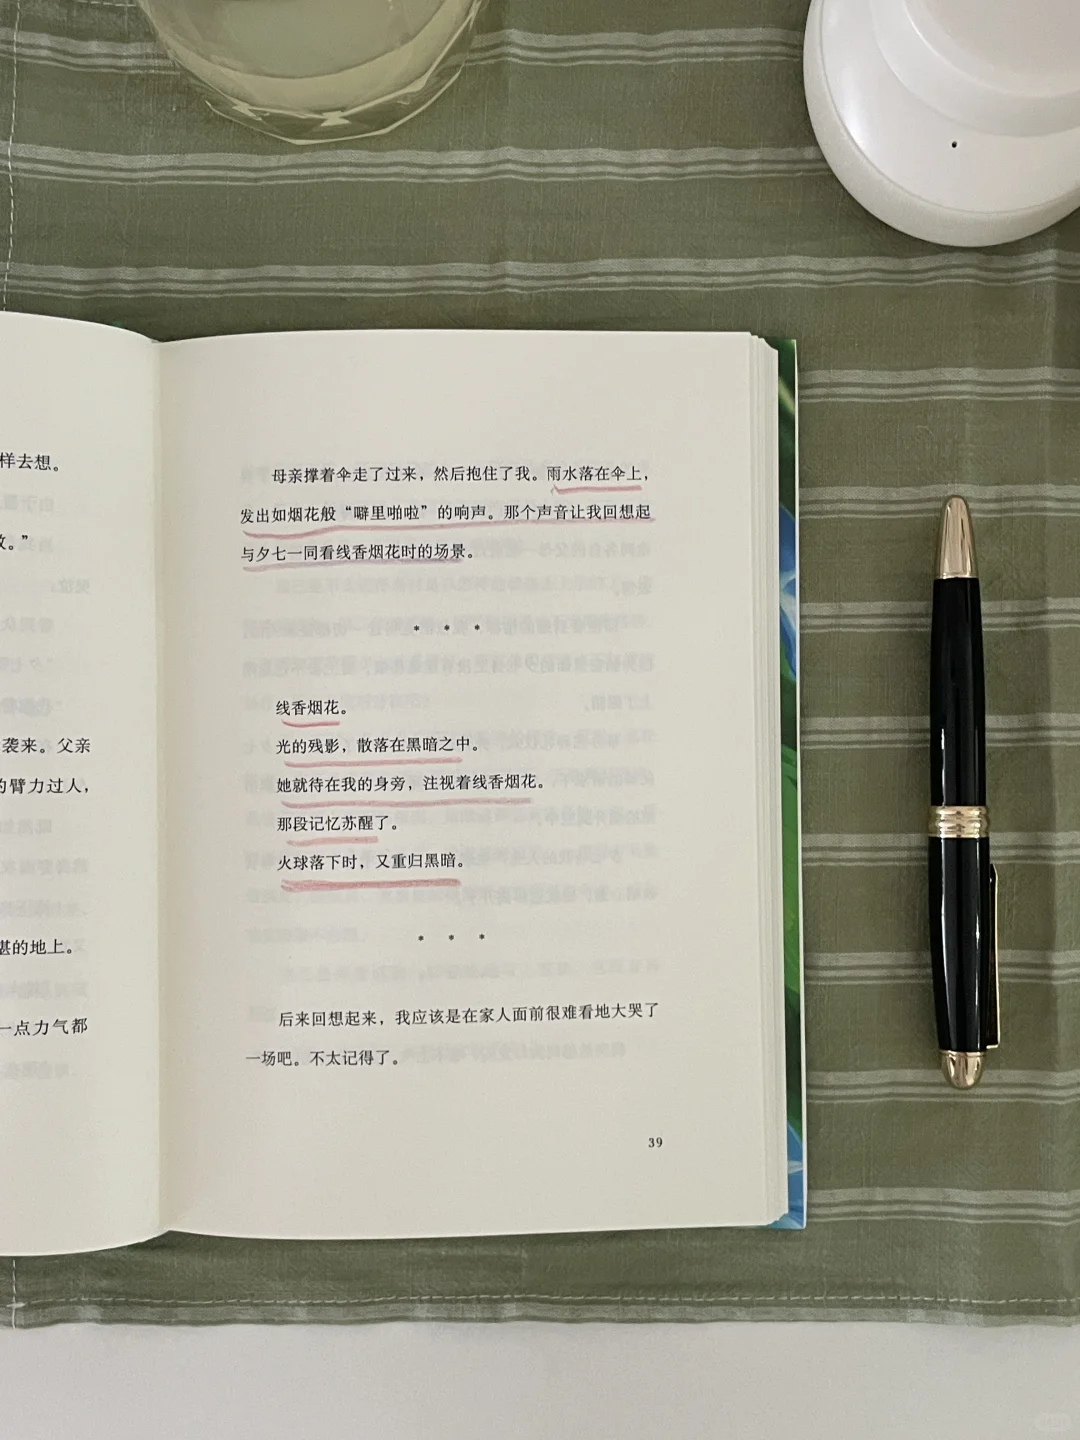 样去想。
攻。”
袭来。父亲
的臂力过人，
堪的地上。
一点力气都
母亲撑着伞走了过来，然后抱住了我。雨水落在伞上，
发出如烟花般“噼里啪啦”的响声。那个声音让我回想起
与夕七一同看线香烟花时的场景。
* * *
线香烟花。
光的残影，散落在黑暗之中。
她就待在我的身旁，注视着线香烟花。
那段记忆苏醒了。
火球落下时，又重归黑暗。
* * *
后来回想起来，我应该是在家人面前很难看地大哭了
一场吧。不太记得了。
39